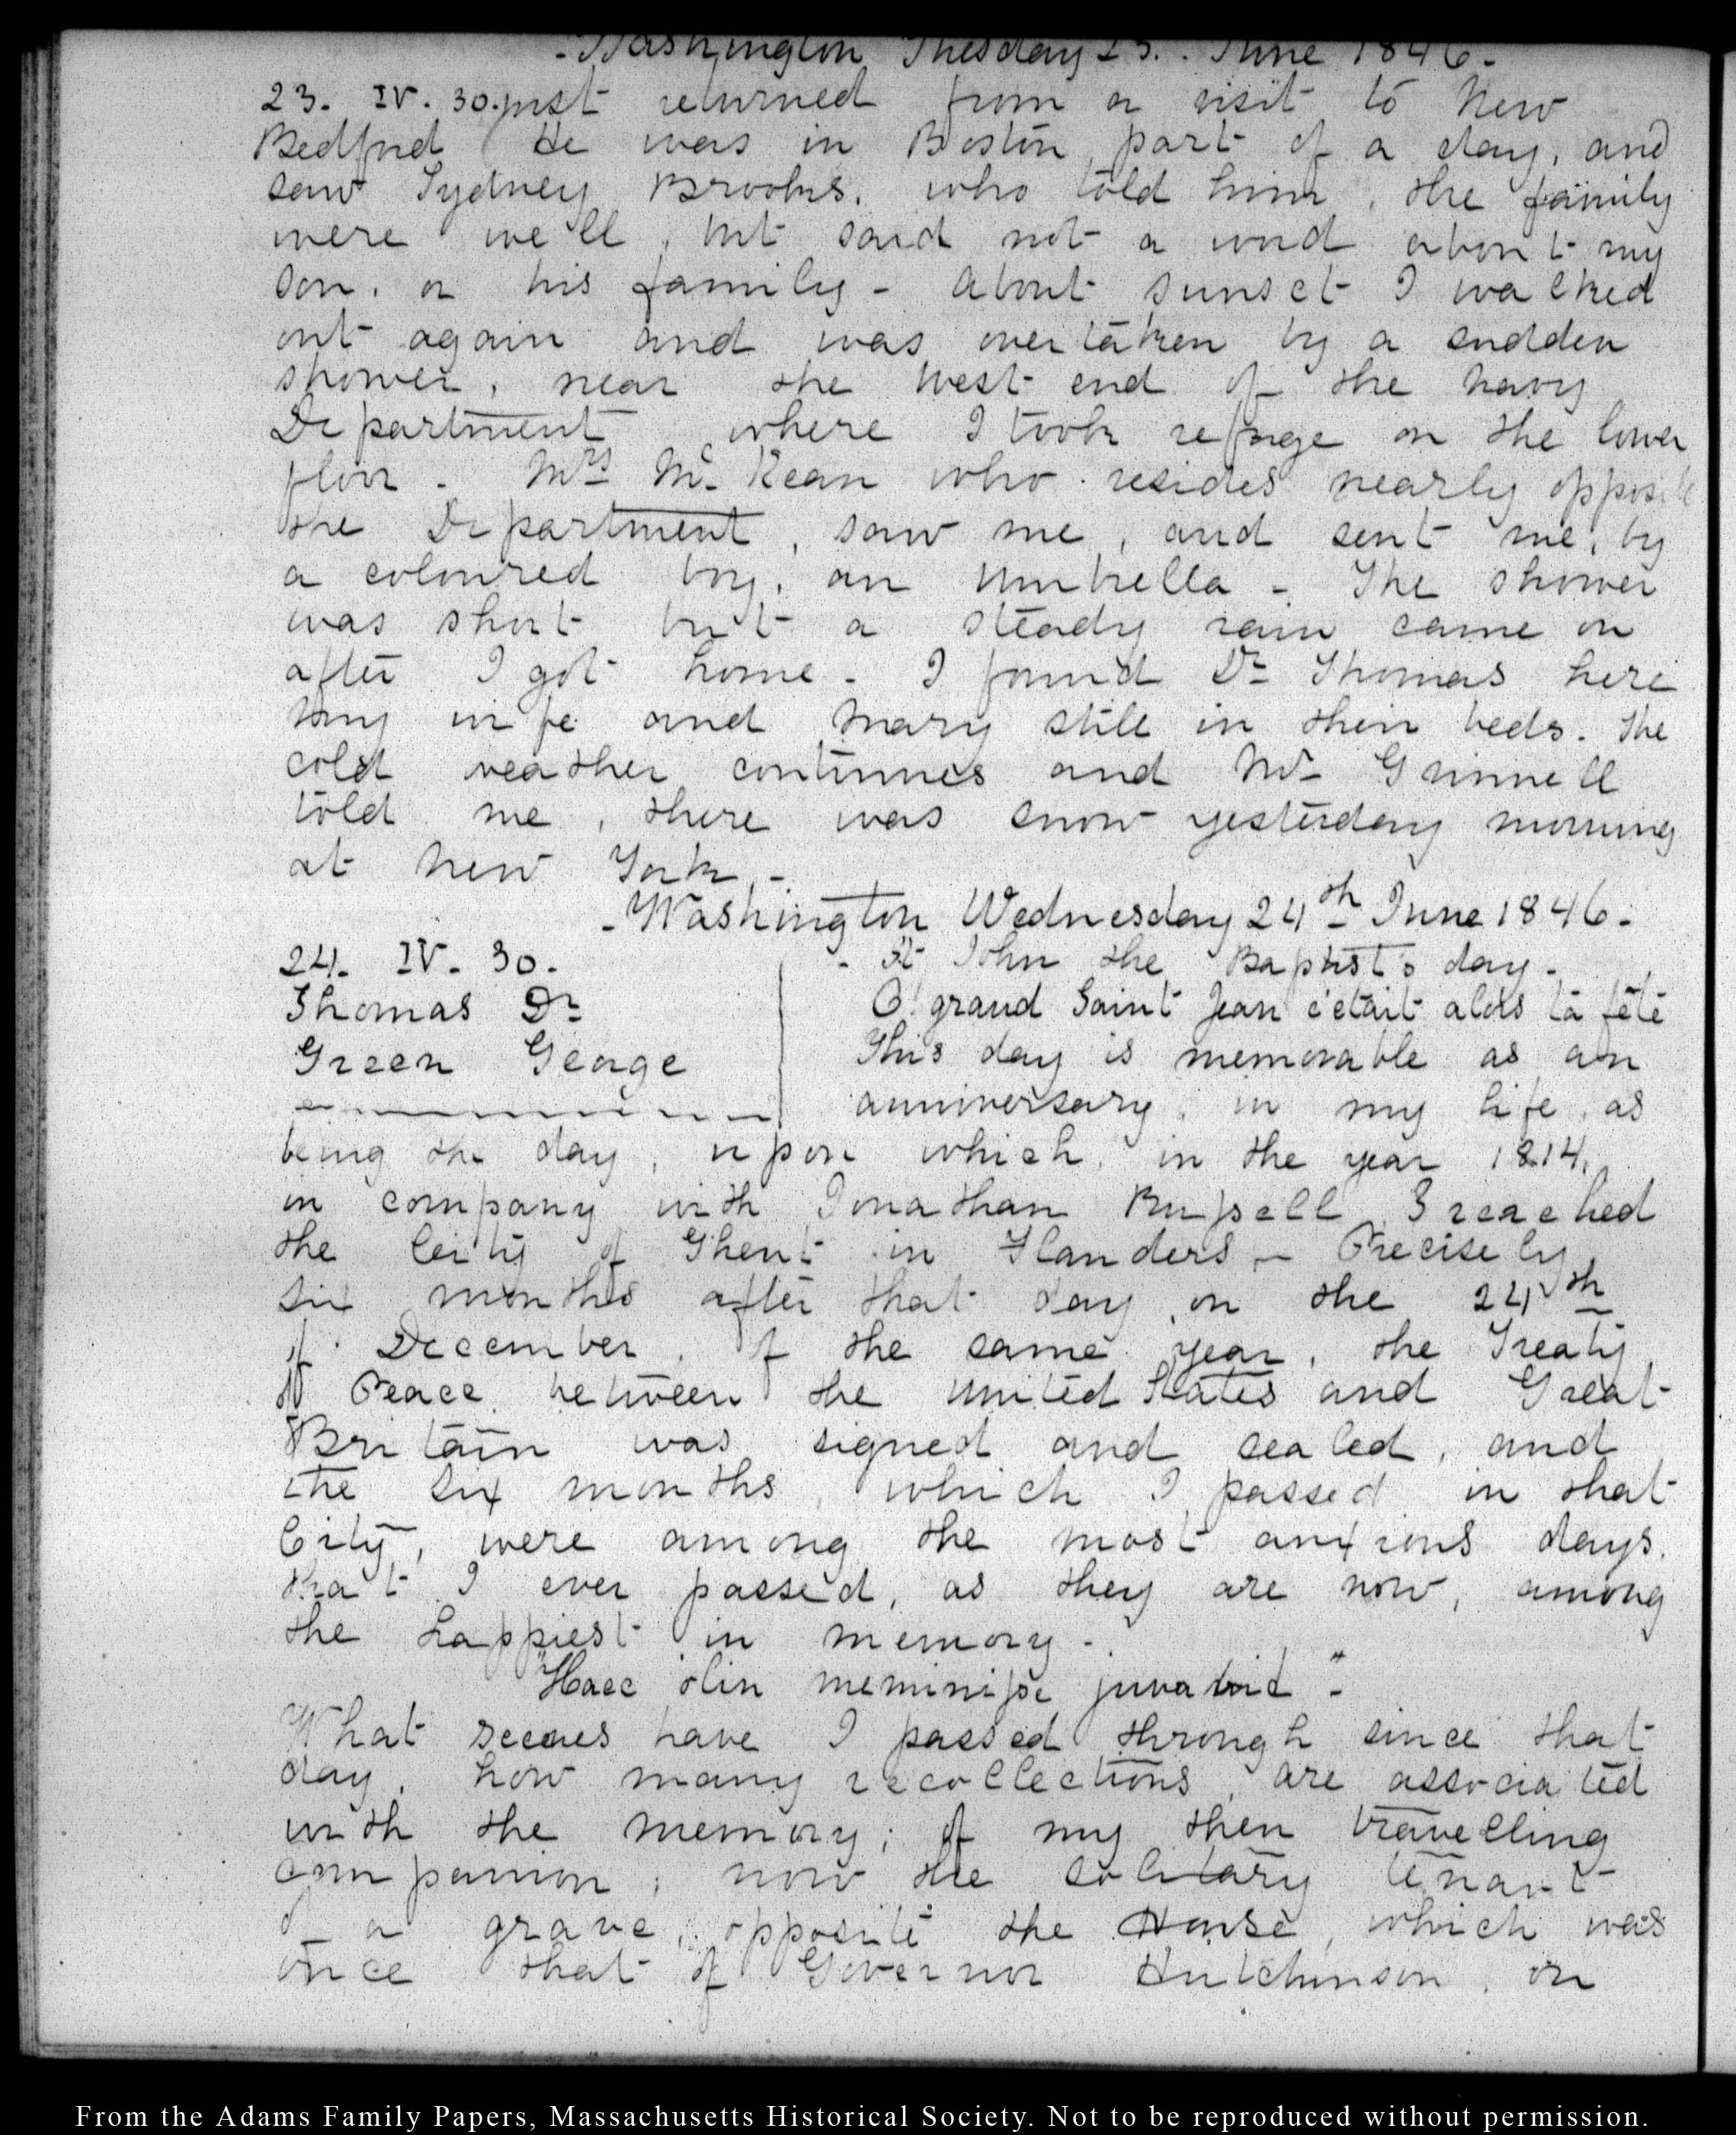 - Washington Tuesday 23. June 1846 -
23. IV. 30. just returned from a visit to New
Bedford He was in Boston, part of a day, and
saw Sydney Brooks, who told him, the family
were well, but said not a word about my
son, or his family - About sunset I walked
out again and was overtaken by a sudden
shower, near the West end of the Navy
Department where I took refuge on the lower
floor - Mrs Mc Kean who resides nearly opposite
the Department, saw me, and sent me, by
a coloured boy, an umbrella - The shower
was short but a steady rain came on
after I got home - I found Dr Thomas here
my wife and Mary still in their beds. The
cold weather continues and Mr Grinnell
told me, there was snow yesterday morning
at New York -
- Washington Wednesday 24th June 1846 -
24. IV. 30. - St John the Baptist's day -
Thomas Dr O! grand Saint Jean c'était alors ta fête
Green George This day is memorable as an
anniversary, in my life, as
being the day, upon which, in the year 1814,
in company with Jonathan Russell I reached
the City of Ghent in Flanders - Precisely
six months after that day on the 24th
of December, of the same year, the Treaty
of Peace between the United States and Great
Britain was signed and sealed, and
the six months, which I passed in that
City, were among the most anxious days,
that I ever passed, as they are now, among
the happiest in memory -
"Haec olin meminisse juvabit" -
What scenes have I passed through since that
day, how many recollections are associated
with the memory; of my then travelling
companion; now the solitary tenant
of a grave, opposite the House, which was
once that of Governor Hutchinson, on
From the Adams Family Papers, Massachusetts Historical Society. Not to be reproduced without permission.